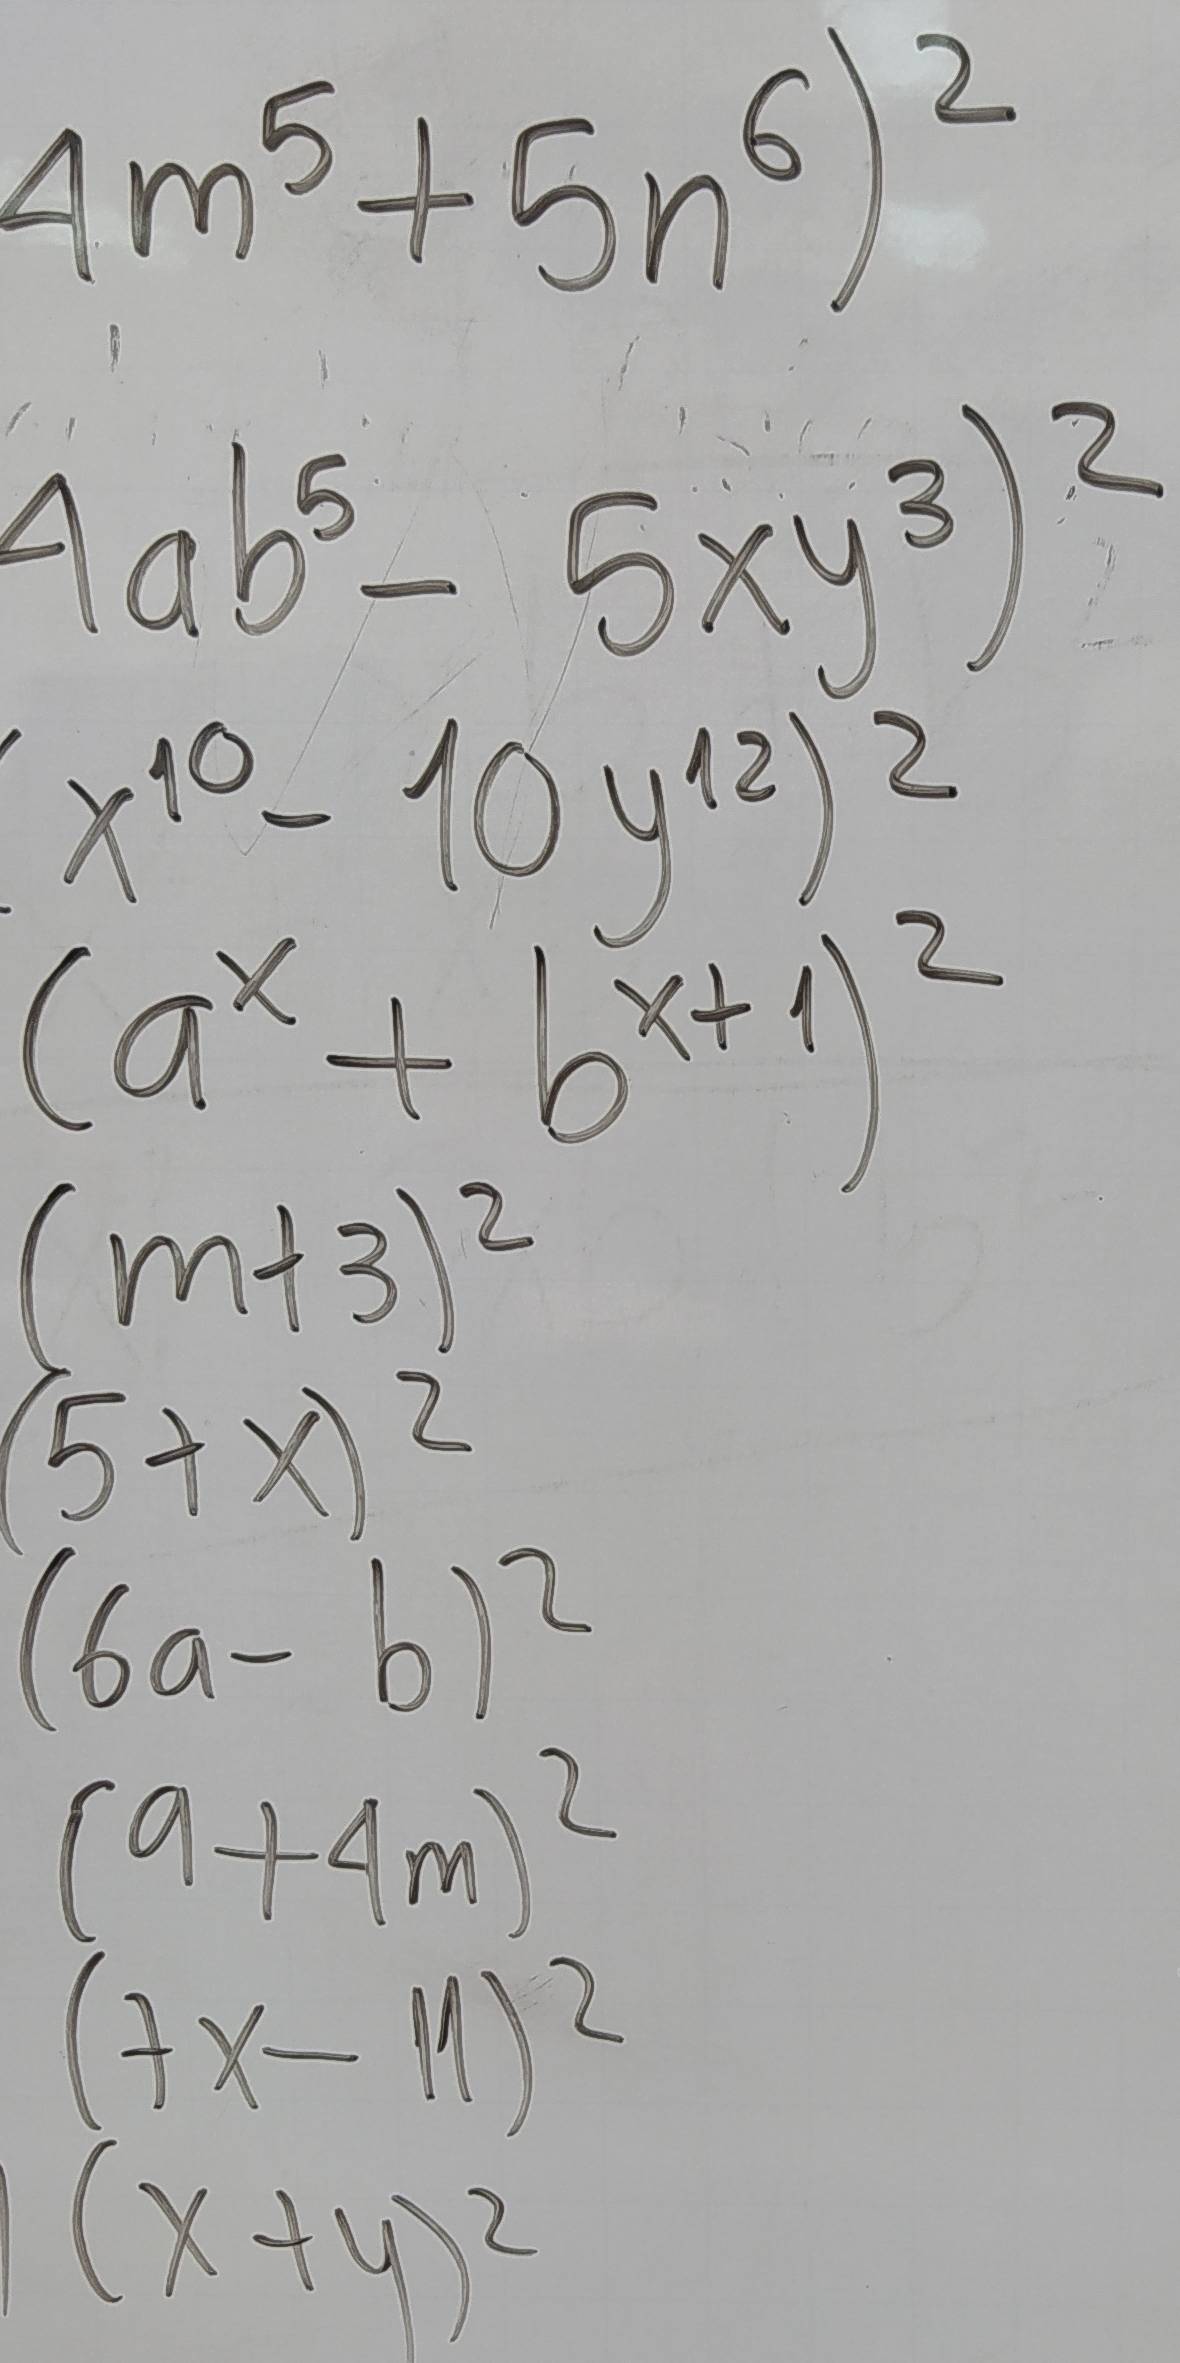 4m⁵+5n⁶)²
4ab⁵- 5xy³)²
(x¹⁰- 10y¹²)²
(aˣ + bˣ⁺¹)²
(m+3)²
(5+x)²
(6a- b)²
(a+4m)²
(7x- 11)²
(x+y)²